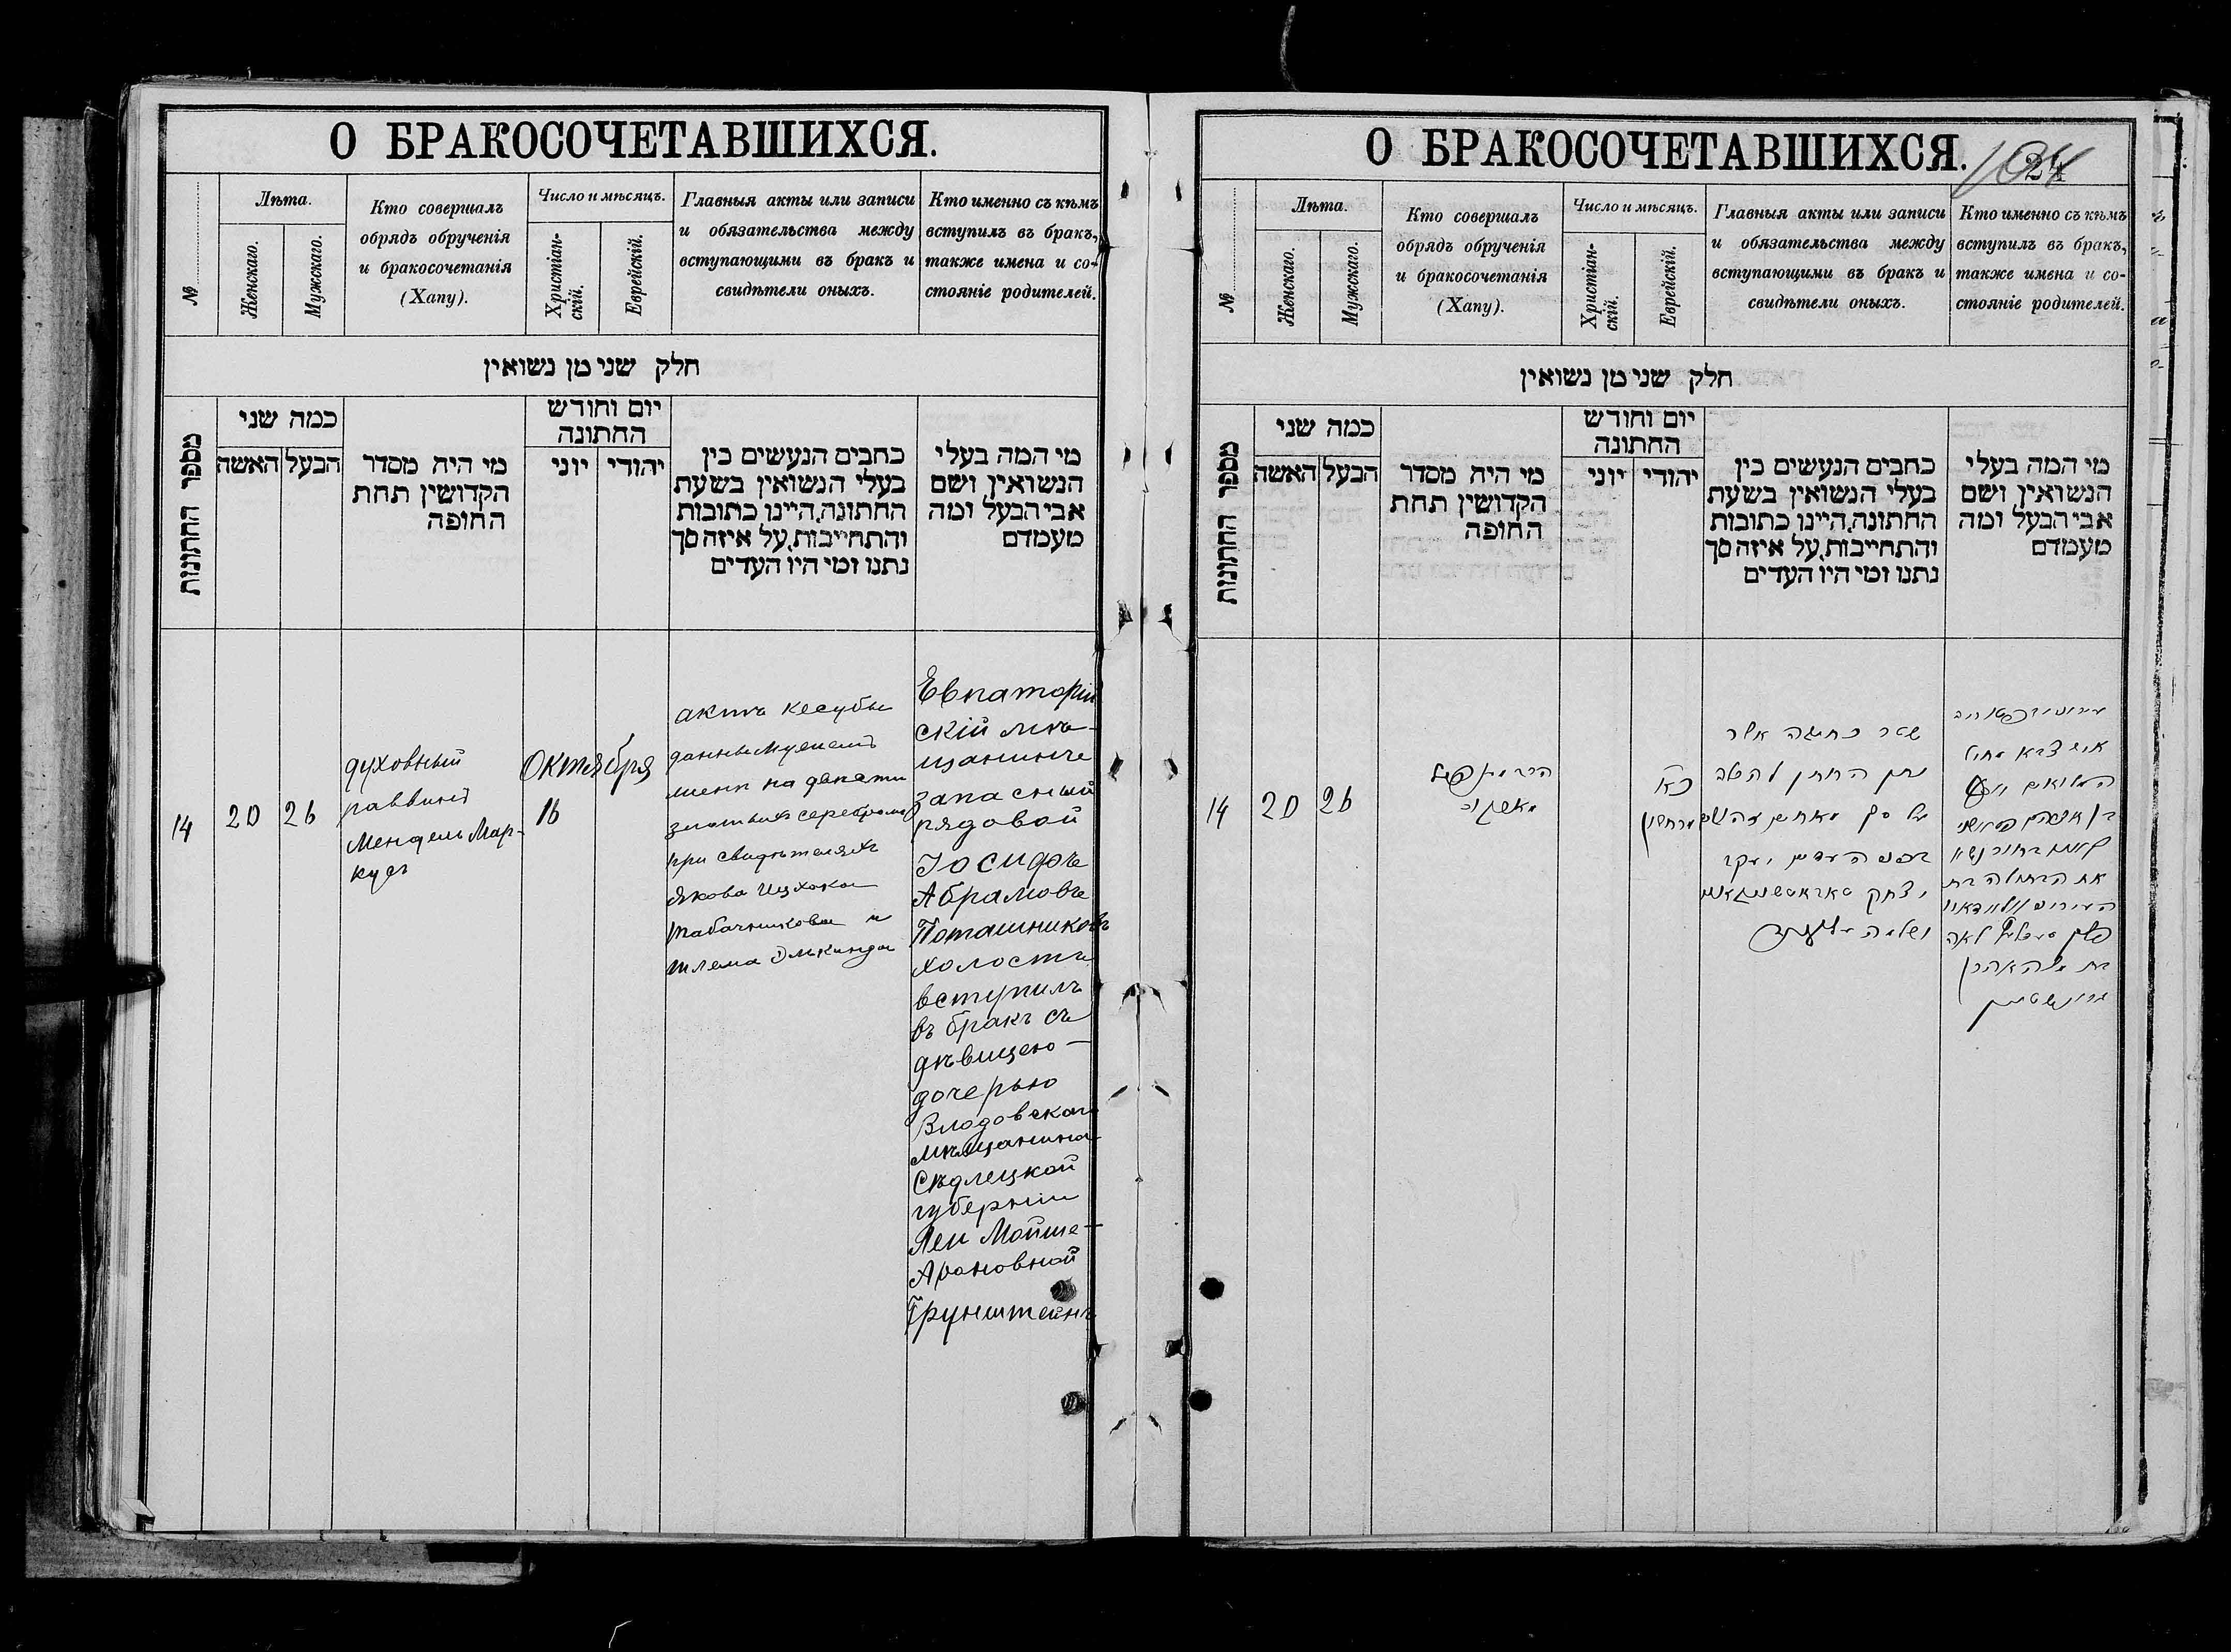 О БРАКОСОЧЕТАВШИХСЯ.
№
Лѣта.
Женскаго.
Мужскаго.
Кто совершалъ
обрядъ обрученія
и бракосочетанія
(Хапу).
Число и мѣсяцъ.
Христіан-
скій.
Еврейскій.
Главныя акты или записи
и обязательства между
вступающими въ бракъ и
свидѣтели оныхъ.
Кто именно съ кѣмъ
вступилъ въ бракъ,
также имена и со-
стояніе родителей.
חלק שני מן נשואין
מספר החתונות
כמה שני
האשה
הבעל
מי היה מסדר
הקדושין תחת
החופה
יום וחודש
החתונה
יוני
יהודי
כתבים הנעשים בין
בעלי הנשואין בשעת
החתונה, היינו כתובות
והתחייבות, על איזה סך
נתנו ומי היו העדים
מי המה בעלי
הנשואין ושם
אבי הבעל ומה
מעמדם
14
20
26
духовный
раввинъ
Мендель Мар-
кусъ
Октября
16
актъ кесубы
данны мужемъ
жене на двѣсти
злотыхъ серебромъ
при свидѣтеляхъ
Якова Ицхока
Табачникова и
Шлема Элькинда
Евпаторій
скій мѣ-
щанинъ
запасный
рядовой
Іосифъ
Абрамовъ
Поташниковъ
холостъ
вступилъ
въ бракъ съ
дѣвицею
дочерью
Влодовскаго
мѣщанина
Сѣдлецкой
губерніи
Леи Мойше-
Ароновной
Грунштейнъ
О БРАКОСОЧЕТАВШИХСЯ.
104
24
№
Лѣта.
Женскаго.
Мужскаго.
Кто совершалъ
обрядъ обрученія
и бракосочетанія
(Хапу).
Число и мѣсяцъ.
Христіан-
скій.
Еврейскій.
Главныя акты или записи
и обязательства между
вступающими въ бракъ и
свидѣтели оныхъ.
Кто именно съ кѣмъ
вступилъ въ бракъ,
также имена и со-
стояніе родителей.
חלק שני מן נשואין
מספר החתונות
כמה שני
האשה
הבעל
מי היה מסדר
הקדושין תחת
החופה
יום וחודש
החתונה
יוני
יהודי
כתבים הנעשים בין
בעלי הנשואין בשעת
החתונה, היינו כתובות
והתחייבות, על איזה סך
נתנו ומי היו העדים
מי המה בעלי
הנשואין ושם
אבי הבעל ומה
מעמדם
14
20
26
מרחשון
שטר כתובה אשר
נתן החתן להכלה
על סך מאתים
בפני העדים יעקב
יצחק
ושלמה
איש צבא
בן אברהם
את הבתולה בת
לאה
בת משה אהרן
גרונשטיין